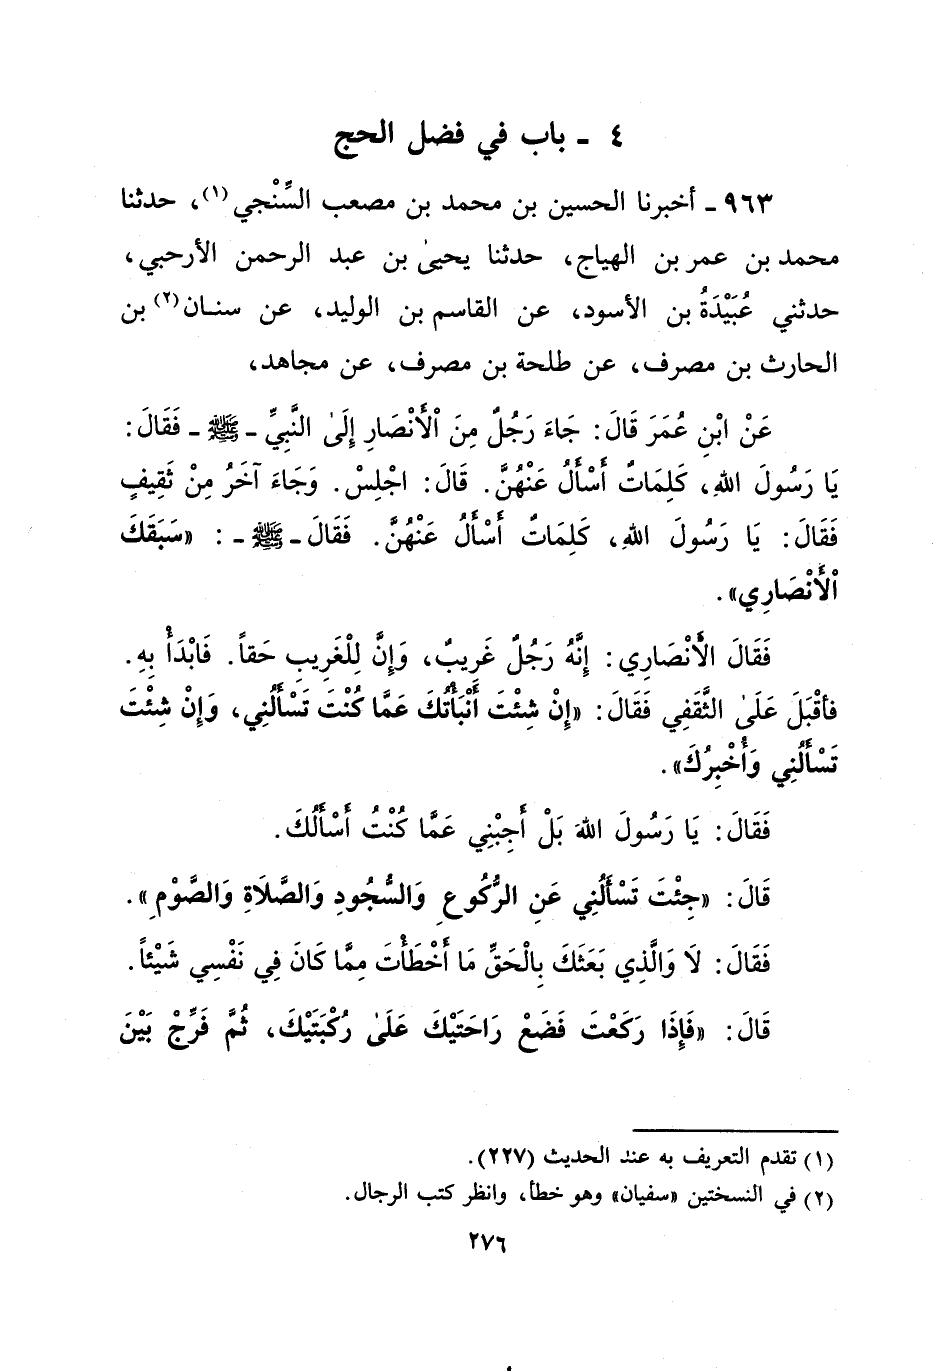 ٤ - باب في فضل الحج
٩٦٣ - أخبرنا الحسين بن محمد بن مصعب السِّنْجي(١)، حدثنا
محمد بن عمر بن الهياج، حدثنا يحيىٰ بن عبد الرحمن الأرحبي،
حدثني عُبَيْدَةُ بن الأسود، عن القاسم بن الوليد، عن سنان(٢) بن
الحارث بن مصرف، عن طلحة بن مصرف، عن مجاهد،
عَنْ ابْنِ عُمَرَ قَالَ: جَاءَ رَجُلٌ مِنَ الْأَنْصَارِ إِلَىٰ النَّبِيِّ - ﷺ - فَقَالَ:
يَا رَسُولَ اللهِ، كَلِمَاتٌ أَسْأَلُ عَنْهُنَّ. قَالَ: اجْلِسْ. وَجَاءَ آخَرُ مِنْ ثَقِيفٍ
فَقَالَ: يَا رَسُولَ اللهِ، كَلِمَاتٌ أَسْأَلُ عَنْهُنَّ. فَقَالَ - ﷺ - : «سَبَقَكَ
الْأَنْصَارِي».
فَقَالَ الأَنْصَارِي: إِنَّهُ رَجُلٌ غَرِيبٌ، وَإِنَّ لِلْغَرِيبِ حَقاً. فَابْدَأْ بِهِ.
فأقْبَلَ عَلَىٰ الثَّقَفِي فَقَالَ: «إِنْ شِئْتَ أَنْبَأْتُكَ عَمَّا كُنْتَ تَسْأَلُنِي، وَإِنْ شِئْتَ
تَسْأَلُنِي وَأُخْبِرُكَ».
فَقَالَ: يَا رَسُولَ اللهَ بَلْ أَجِبْنِي عَمَّا كُنْتُ أَسْأَلُكَ.
قَالَ: «جِئْتَ تَسْأَلُنِي عَنِ الرُّكُوعِ وَالسُّجُودِ وَالصَّلَاةِ وَالصَّوْمِ».
فَقَالَ: لَا وَالَّذِي بَعَثَكَ بِالْحَقِّ مَا أَخْطَأْتَ مِمَّا كَانَ فِي نَفْسِي شَيْئاً.
قَالَ: «فَإِذَا رَكَعْتَ فَضَعْ رَاحَتَيْكَ عَلَىٰ رُكْبَتَيْكَ، ثُمَّ فَرِّجْ بَيْنَ
(١) تقدم التعريف به عند الحديث (٢٢٧).
(٢) في النسختين «سفيان» وهو خطأ، وانظر كتب الرجال.
٢٧٦